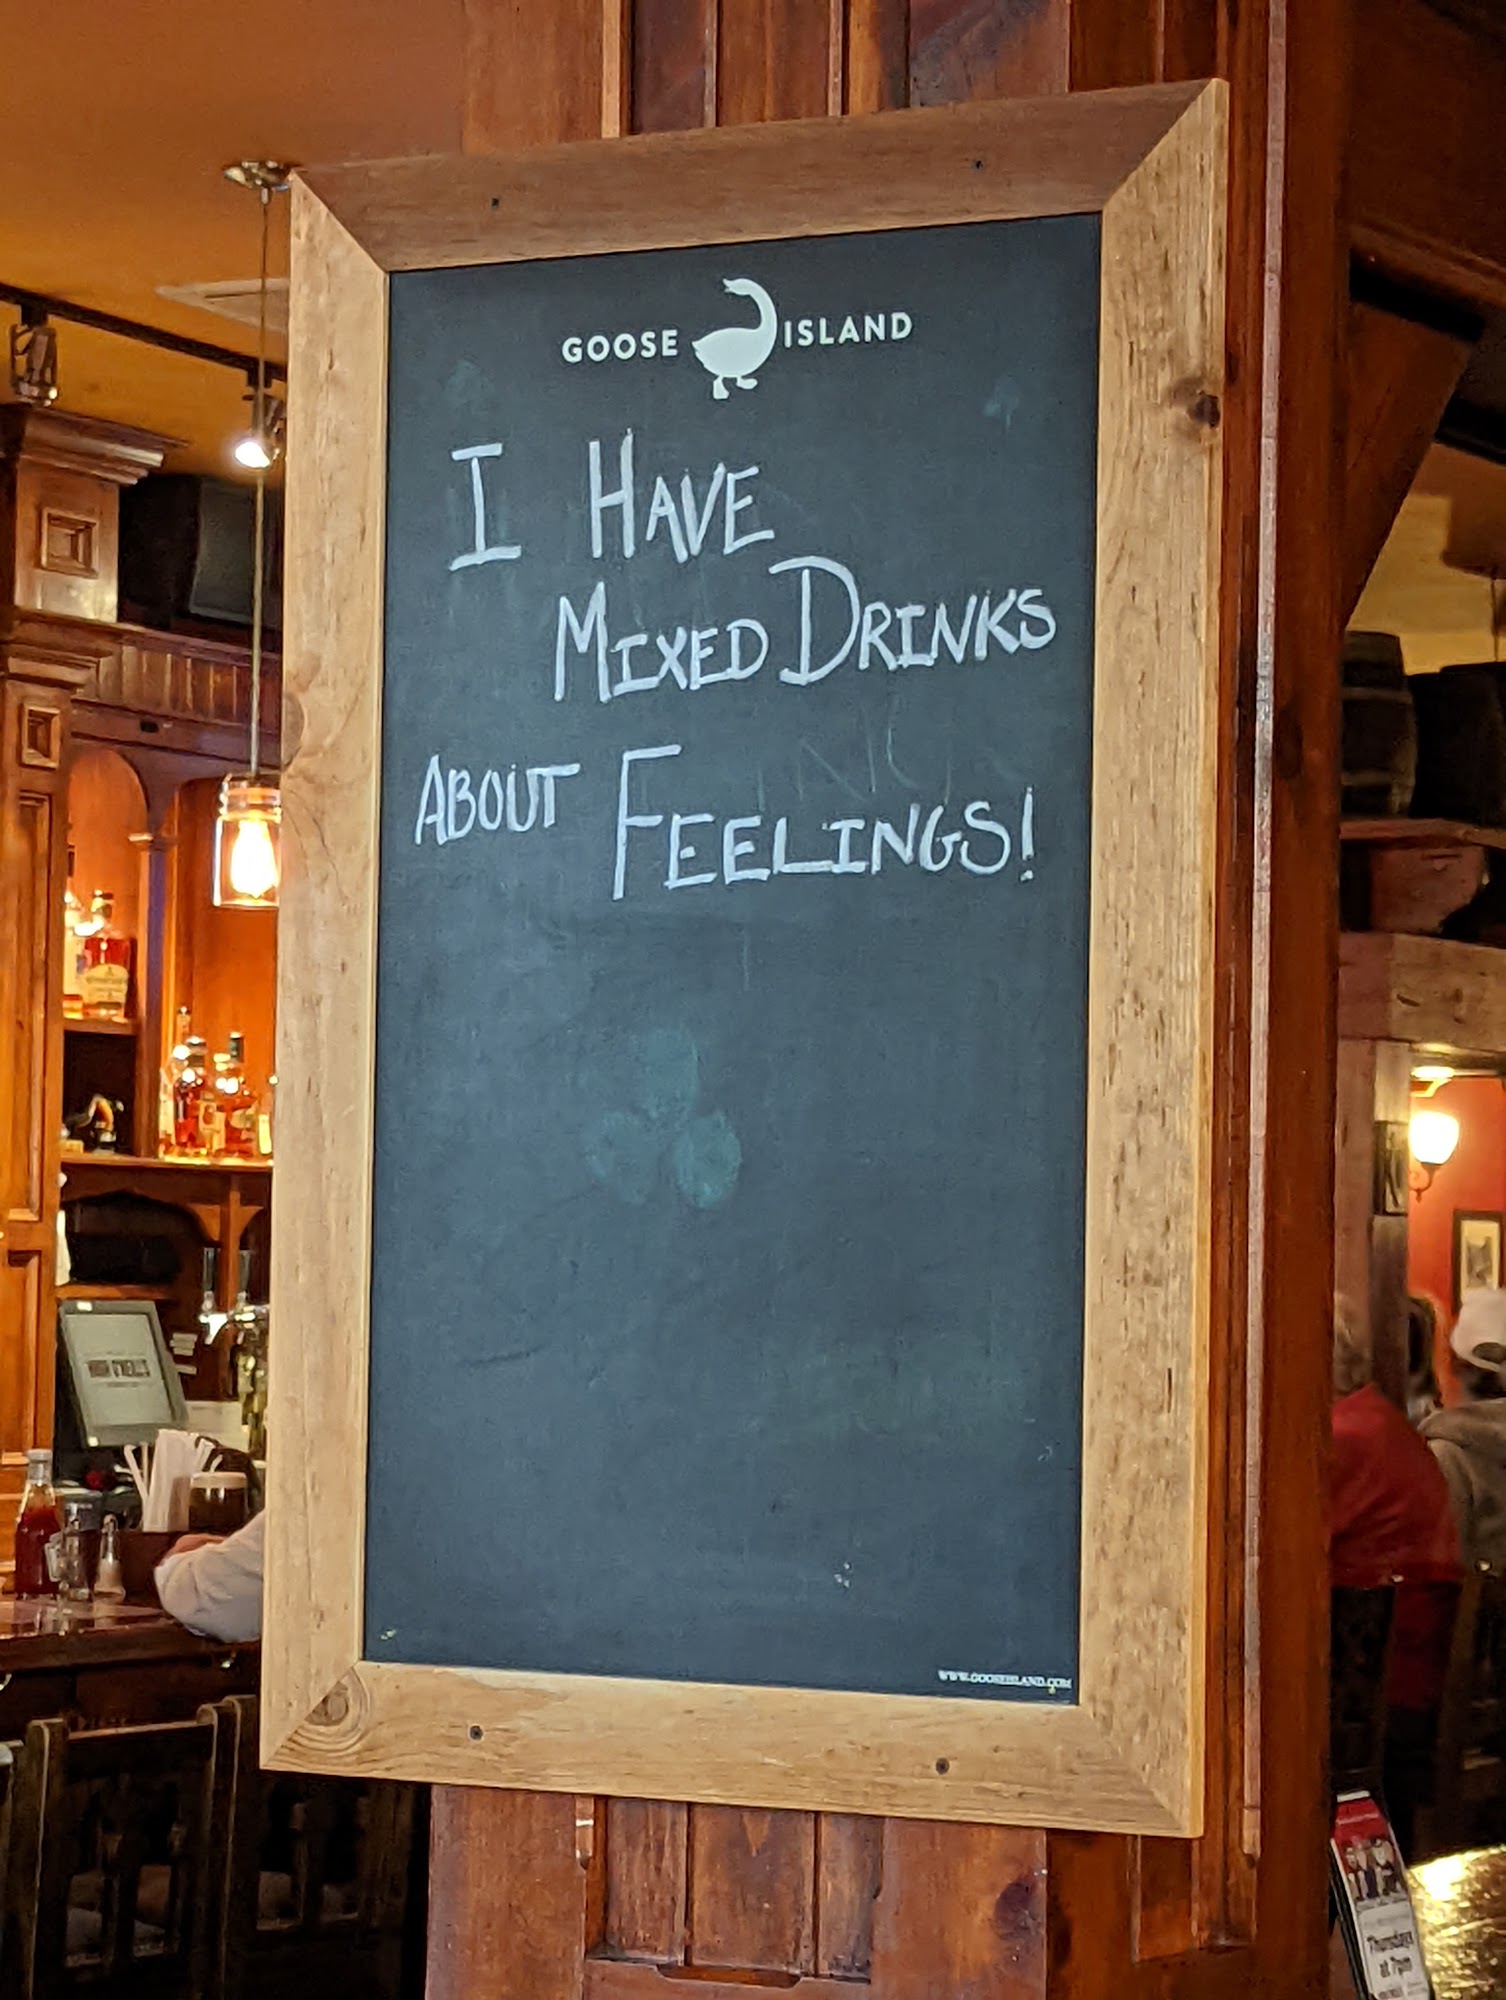 GOOSE ISLAND
I HAVE
MIXED DRINKS
ABOUT FEELINGS!
WWW.GOOSEISLAND.COM
Thursdays
at 7pm